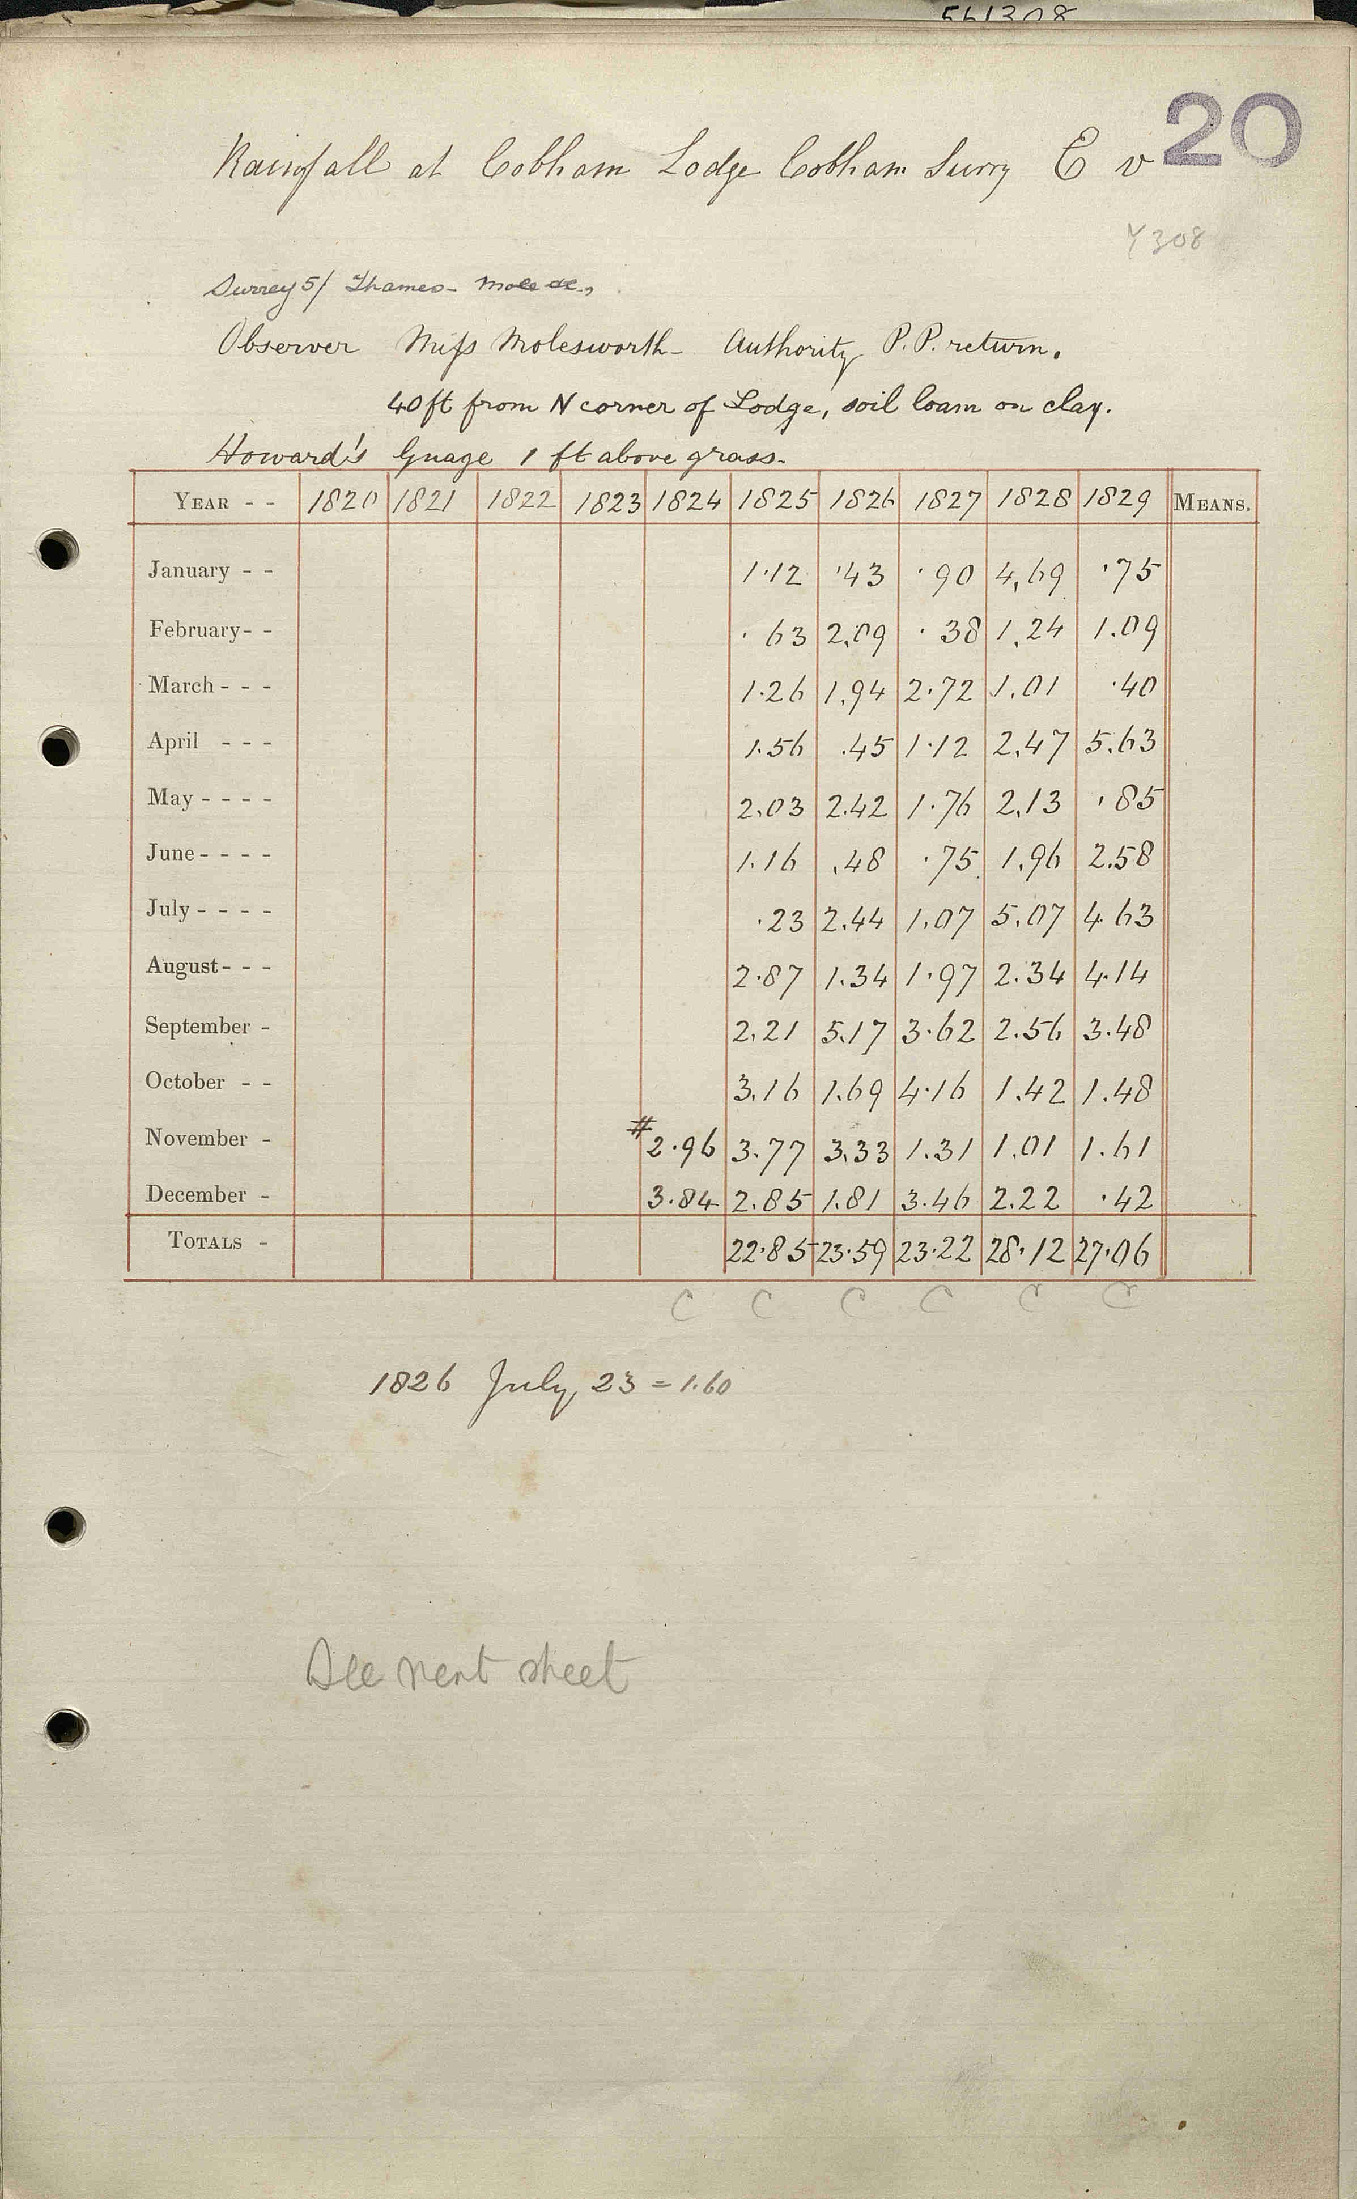 561308
20
Rainfall at Cobham Lodge Cobham Surry E v
Y308
Surrey 5/ Thames - Mole
Observer Miss Molesworth - Authority P.P. return.
40 ft from N corner of Lodge, soil loam on clay.
Howard's Guage 1 ft above grass.
YEAR - - 1820 1821 1822 1823 1824 1825 1826 1827 1828 1829 MEANS.
January - - 1.12 .43 .90 4.69 .75
February - - .63 2.09 .38 1.24 1.09
March - - - 1.26 1.94 2.72 1.01 .40
April - - - 1.56 .45 1.12 2.47 5.63
May - - - - 2.03 2.42 1.76 2.13 .85
June - - - - 1.16 .48 .75 1.96 2.58
July - - - - .23 2.44 1.07 5.07 4.63
August - - - 2.87 1.34 1.97 2.34 4.14
September - 2.21 5.17 3.62 2.56 3.48
October - - 3.16 1.69 4.16 1.42 1.48
November - # 2.96 3.77 3.33 1.31 1.01 1.61
December - 3.84 2.85 1.81 3.46 2.22 .42
TOTALS - 22.85 23.59 23.22 28.12 27.06
C C C C C C
1826 July 23 = 1.60
See next sheet